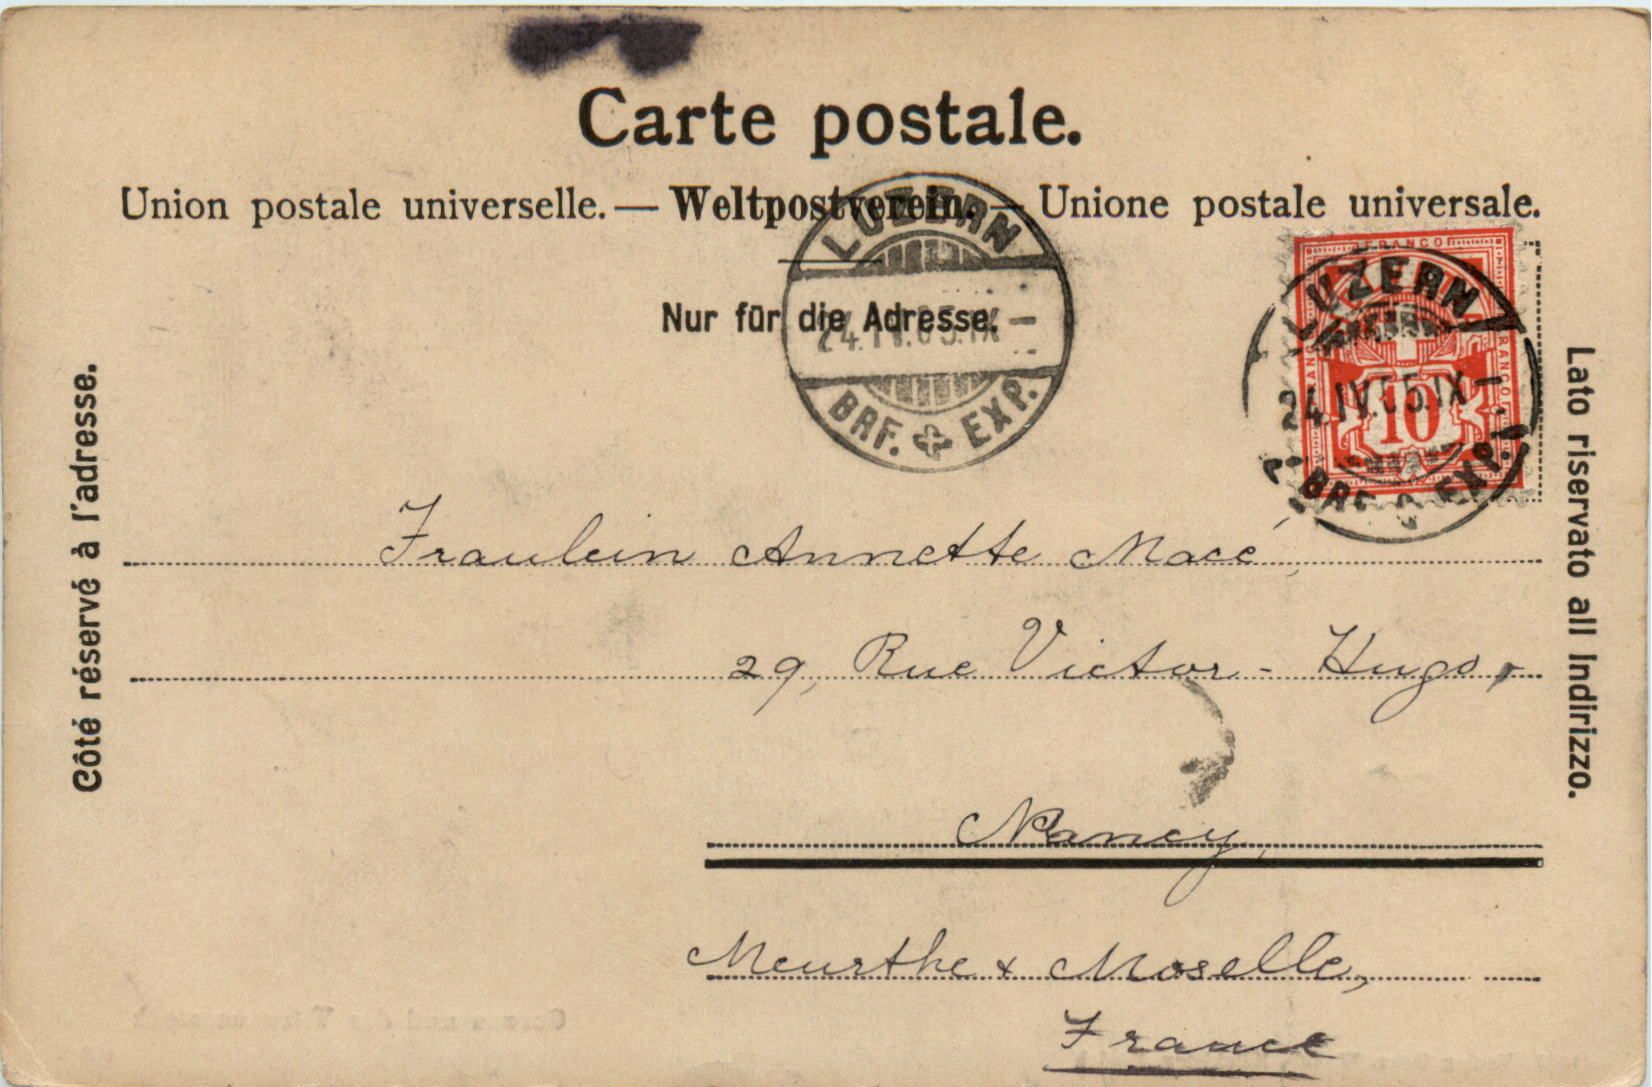 Carte postale.
Union postale universelle. — Weltpostverein. — Unione postale universale.
Nur für die Adresse.
LUZERN
24.IV.05.IX–
BRF. EXP.
FRANCO
LUZERN
24.IV.05.IX–
10
BRF. EXP.
Côté réservé à l'adresse.
Lato riservato all Indirizzo.
Fraulein Annette Macé,
29, Rue Victor-Hugo,
Nancy,
Meurthe & Moselle,
France